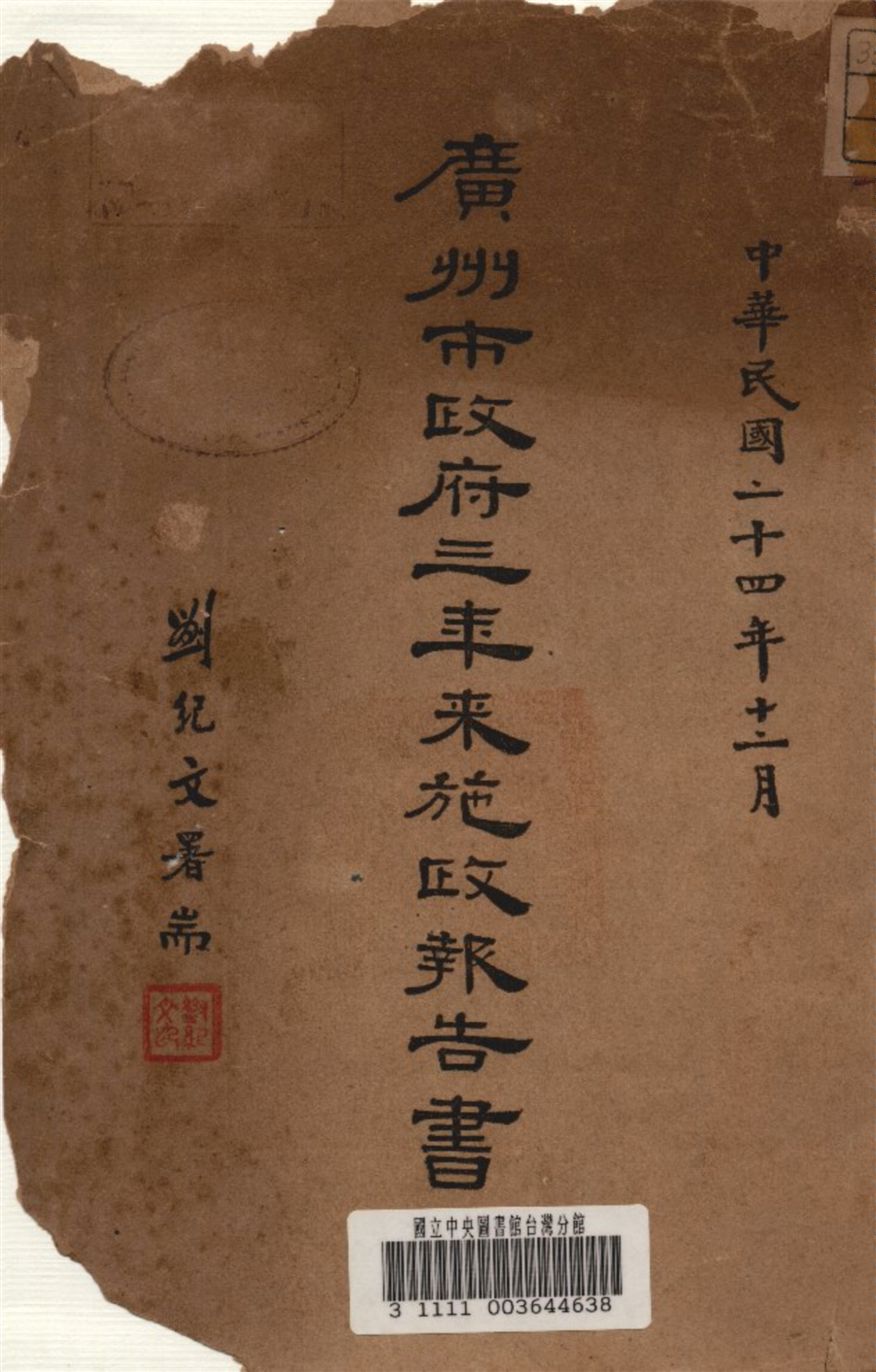 中華民國二十四年十二月
廣州市政府三年来施政報告書
劉紀文署耑
劉紀文印
國立中央圖書館台灣分館
3 1111 003644638